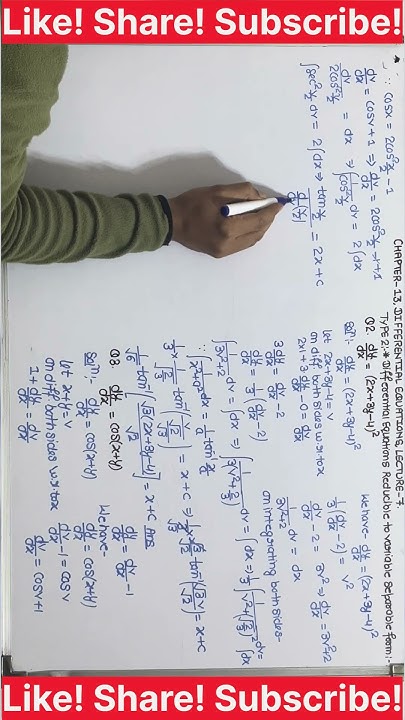 Like! Share! Subscribe!
CHAPTER-13, DIFFERENTIAL EQUATIONS, LECTURE-7
TYPE 2:- * Differential Equations Reducible to variable separable form:-
Q2. dy/dx = (2x+3y-4)²
Solⁿ: dy/dx = (2x+3y-4)²
let 2x+3y-4=v
on diff both sides w.r.to x
2x1+3dy/dx-0=dv/dx
3dy/dx = dv/dx -2
dy/dx = 1/3(dv/dx -2)
We have- dy/dx = (2x+3y-4)²
1/3(dv/dx -2) = v²
dv/dx -2 = 3v² ⇒ dv/dx = 3v²+2
1/(3v²+2) dv = dx
on integrating both sides-
∫1/(3v²+2) dv = ∫dx ⇒ ∫1/3(v²+2/3) dv = ∫dx ⇒ 1/3∫1/(v²+(√2/√3)²) dv = ∫dx
∵ ∫1/(x²+a²) dx = 1/a tan⁻¹ x/a
1/3 × 1/(√2/√3) tan⁻¹(v/(√2/√3)) = x+c ⇒ 1/3 × √3/√2 tan⁻¹(√3v/√2) = x+c
1/√6 tan⁻¹[√3(2x+3y-4)/√2] = x+c Ans
Q3. dy/dx = cos(x+y)
Solⁿ: dy/dx = cos(x+y)
let x+y=v
on diff both sides w.r.to x
1+dy/dx = dv/dx
dy/dx = dv/dx -1
We have-
dy/dx = cos(x+y)
dv/dx -1 = cosv
dv/dx = cosv+1
∵ cosx = 2cos²x/2 -1
dv/dx = cosv+1 ⇒ dv/dx = 2cos²v/2 -1+1
dv/2cos²v/2 = dx ⇒ ∫1/cos²v/2 dv = 2∫dx
∫sec²v/2 dv = 2∫dx ⇒ tan v/2 / d/dv(v/2) = 2x+c
Like! Share! Subscribe!